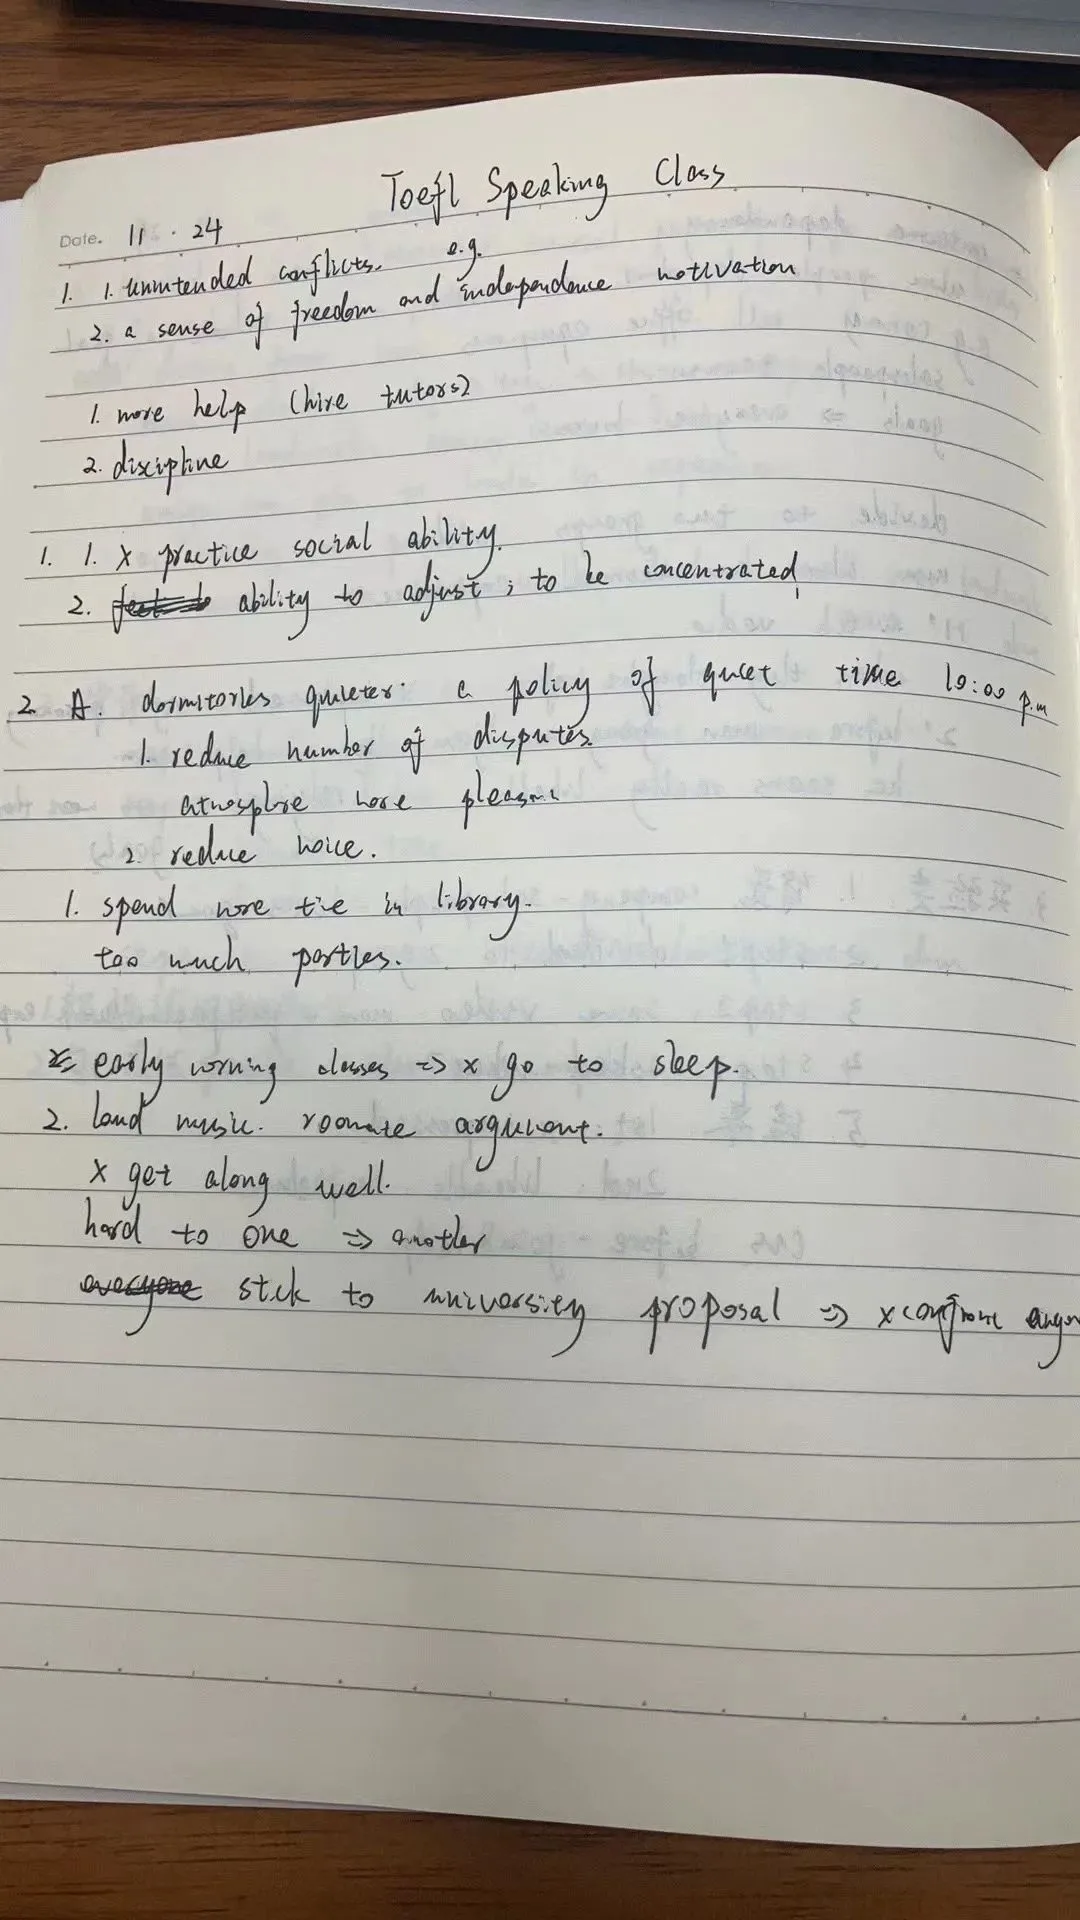 Toefl Speaking Class
Date. 11 · 24
1. 1. unintended conflicts. e.g.
2. a sense of freedom and independence motivation
1. more help (hire tutors)
2. discipline
1. 1. x practice social ability.
2. ability to adjust ; to be concentrated
2 A. dormitories quieter: a policy of quiet time 10:00 p.m
1. reduce number of disputes.
atmosphere more
2. reduce noice.
1. spend more tie in library.
too much parties.
early morning classes => x go to sleep.
2. loud music. roomate argument.
x get along well.
hard to one => another
everyone stick to university proposal => x